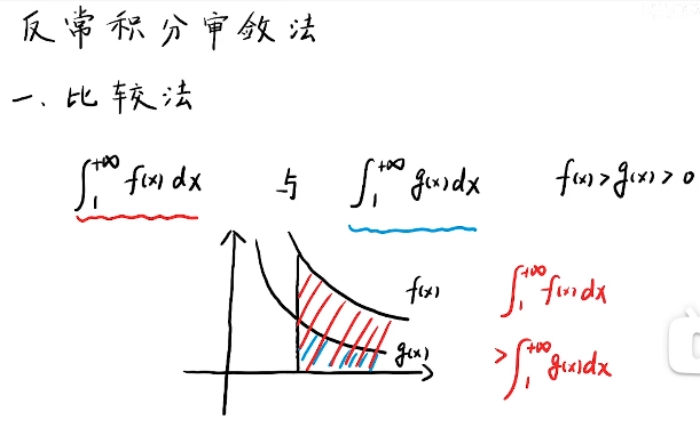 反常积分审敛法
一、比较法
∫₁^{+∞} f(x) dx 与 ∫₁^{+∞} g(x) dx f(x) > g(x) > 0
f(x)
g(x)
∫₁^{+∞} f(x) dx
> ∫₁^{+∞} g(x) dx